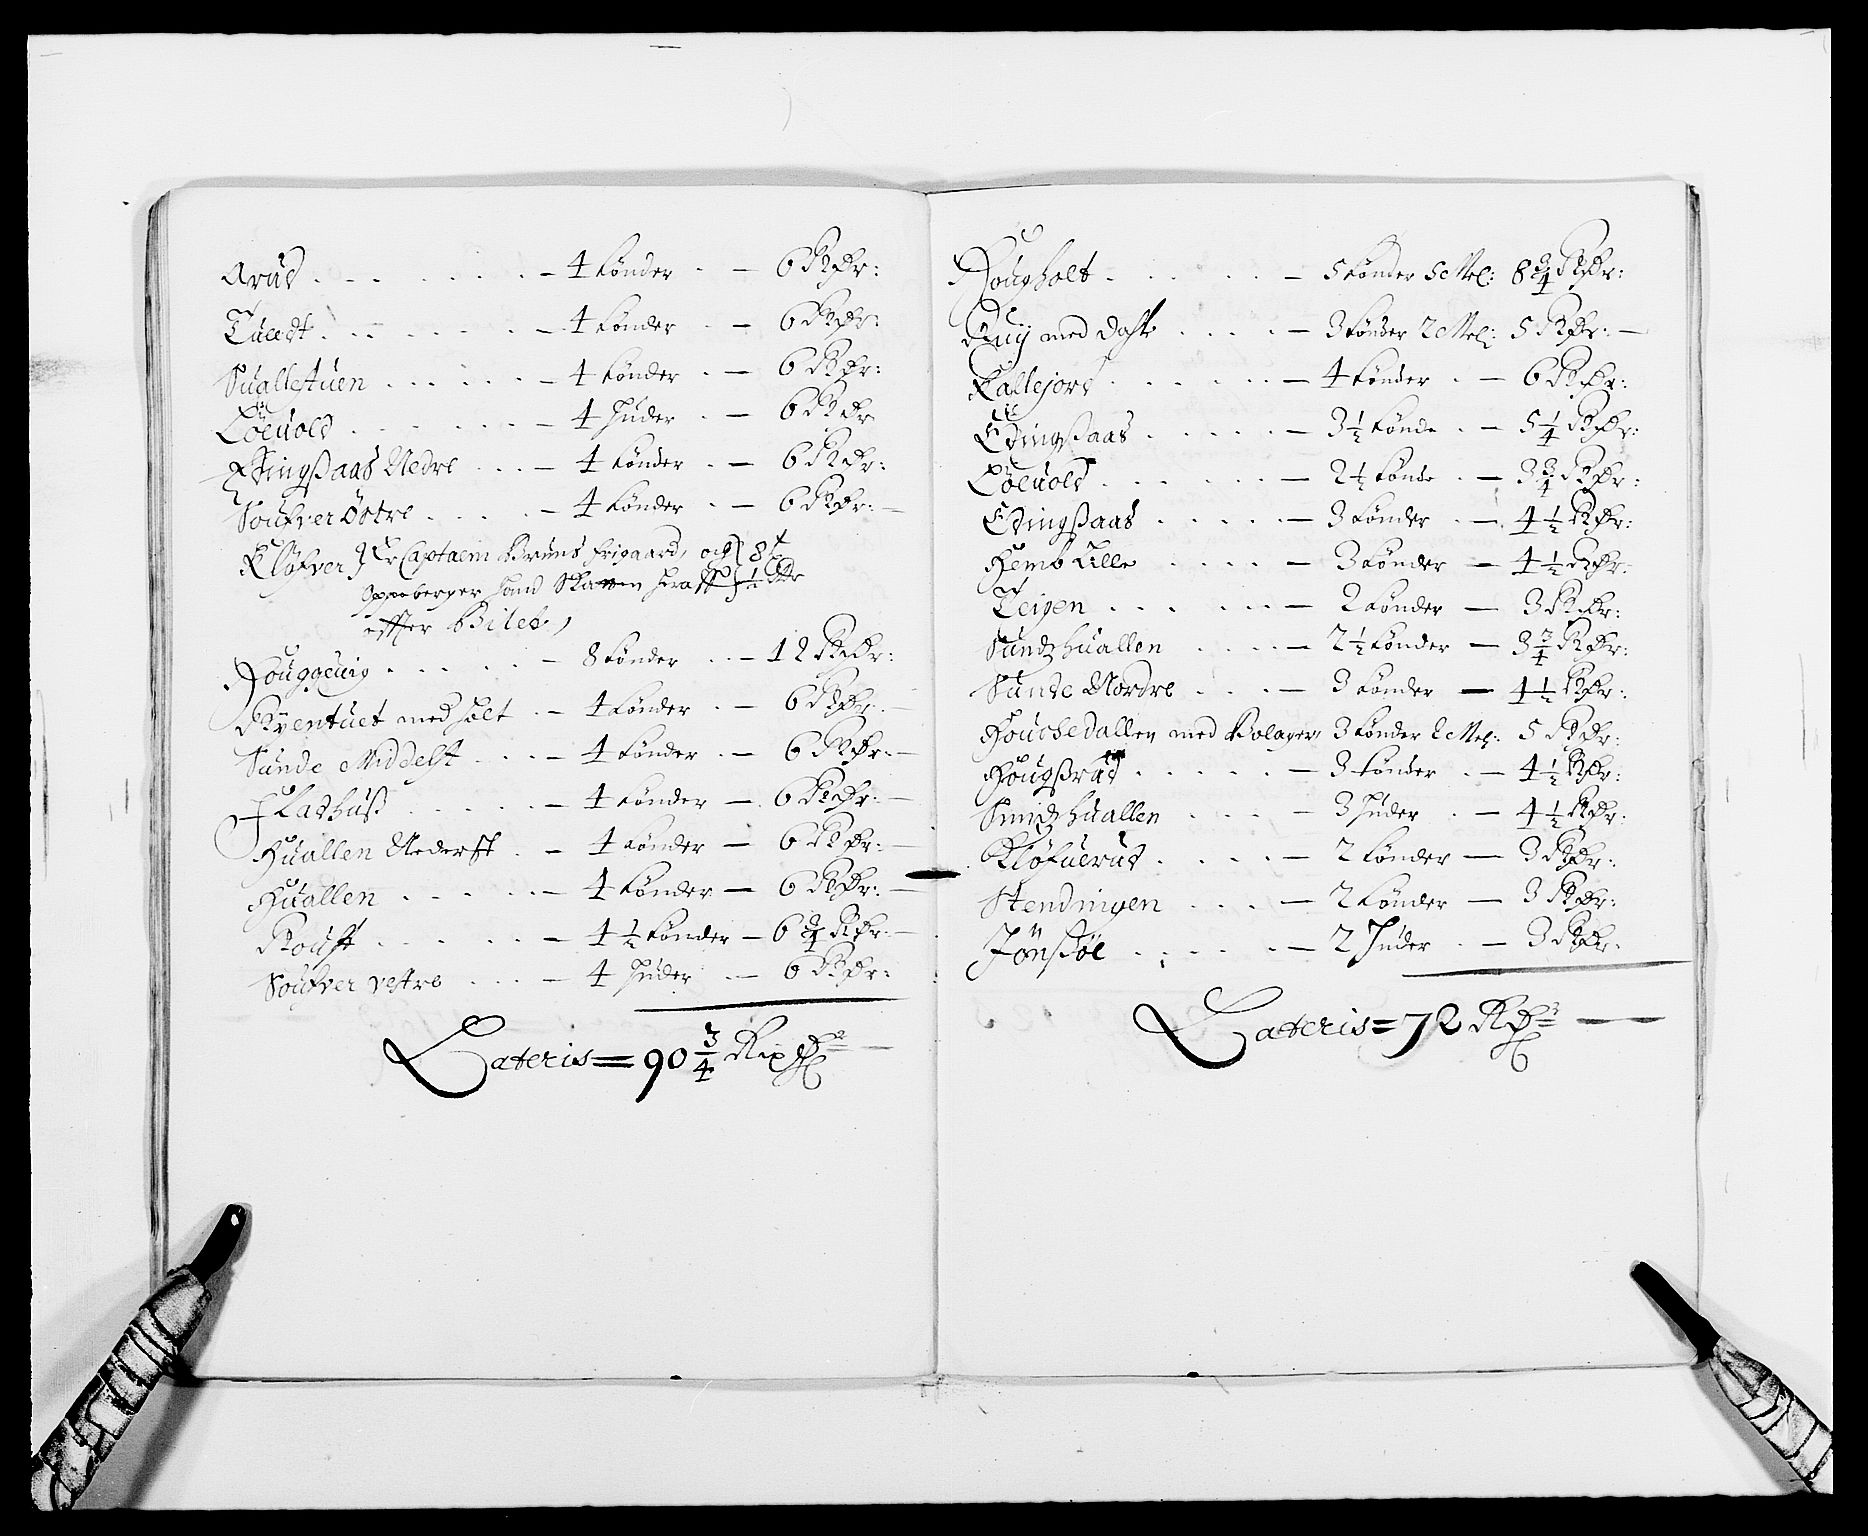 Arud . . . . . . . – 4 tønder . – 6 RDr:
Tuedt . . . . . . . – 4 tønder . – 6 RDr:
Suallestuen . . . . . . – 4 tønder . – 6 RDr:
Løeuold . . . . . . – 4 Huder . – 6 RDr
Edingßaas Nedre . . . – 4 tønder . – 6 RDr:
Soufver Østre . . . . – 4 tønder . – 6 RDr: –
Kløfver } Er Captaein Bruns frigaard, och } 8
Oppeberger hand Skatten ½
effter Bilet,
Houggeuig . . . . . . – 8 tønder . . – 12 RDr:
Kventuet med holt . – 4 tønder . – 6 RDr: –
Sunde Middelst . . . – 4 tønder . – 6 RDr: –
Ladhuß . . . . – 4 tønder – 6 RDr: –
Huallen Nederst . – 4 tønder – 6 RDr: –
Huallen . . . . . – 4 tønder – 6 RDr: –
Roust . . . . . . – 4 ½ tønder – 6 ¾ RDr: –
Soufver vestre . . . – 4 Huder . – 6 RDr:
Lateris = 90 ¾ Rixdr –
Hougholt . . . . . – 5 tønder 5 Mel: 8 ¾ RDr:
Ruy med . . . . – 3 tønder 2 Mel: 5 RDr: –
Kallejord . . . . . . – 4 tønder . – 6 RDr:
Edingßaas . . . . . – 3 ½ tønde . – 5 ¼ RDr:
Løeuold . . . . . . – 2 ½ tønde . – 3 ¾ RDr:
Edingßaas . . . . . – 3 tønder . – 4 ½ RDr:
Hemb Lille . . . . – 3 tønder – 4 ½ RDr:
Teigen . . . . . . – 2 tønder – 3 RDr:
Sundzhuallen . . . . – 2 ½ tønder – 3 ¾ RDr:
Sunde Nordre . . . – 3 tønder – 4 ½ RDr:
Houchedallen med Bolager 3 tønder 2 Mel: 5 RDr:
Hougßrud . . . . . – 3 tønder . – 4 ½ RDr:
Smidzhuallen . . . . – 3 Huder . – 4 ½ RDr:
Kløfuerud . . . . – 2 tønder – 3 RDr:
Stendningen . . . – 2 tønder – 3 RDr:
Jønsbøe . . . . . – 2 Huder . – 3 RDr:
Lateris = 72 RDr –